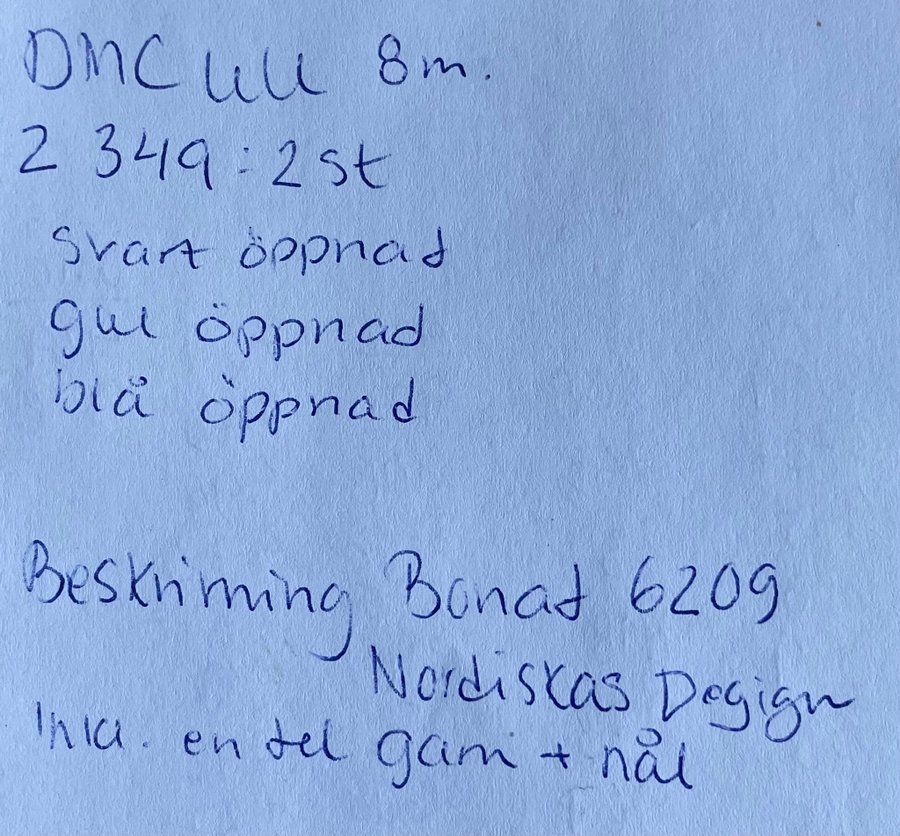 DMC ull 8m.
2 349: 2 st
svart öppnad
gul öppnad
blå öppnad
Beskrivning Bonad 6209
Nordiskas Design
Inkl. en del garn + nål